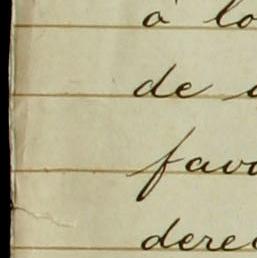 á lo
de
favo
dere